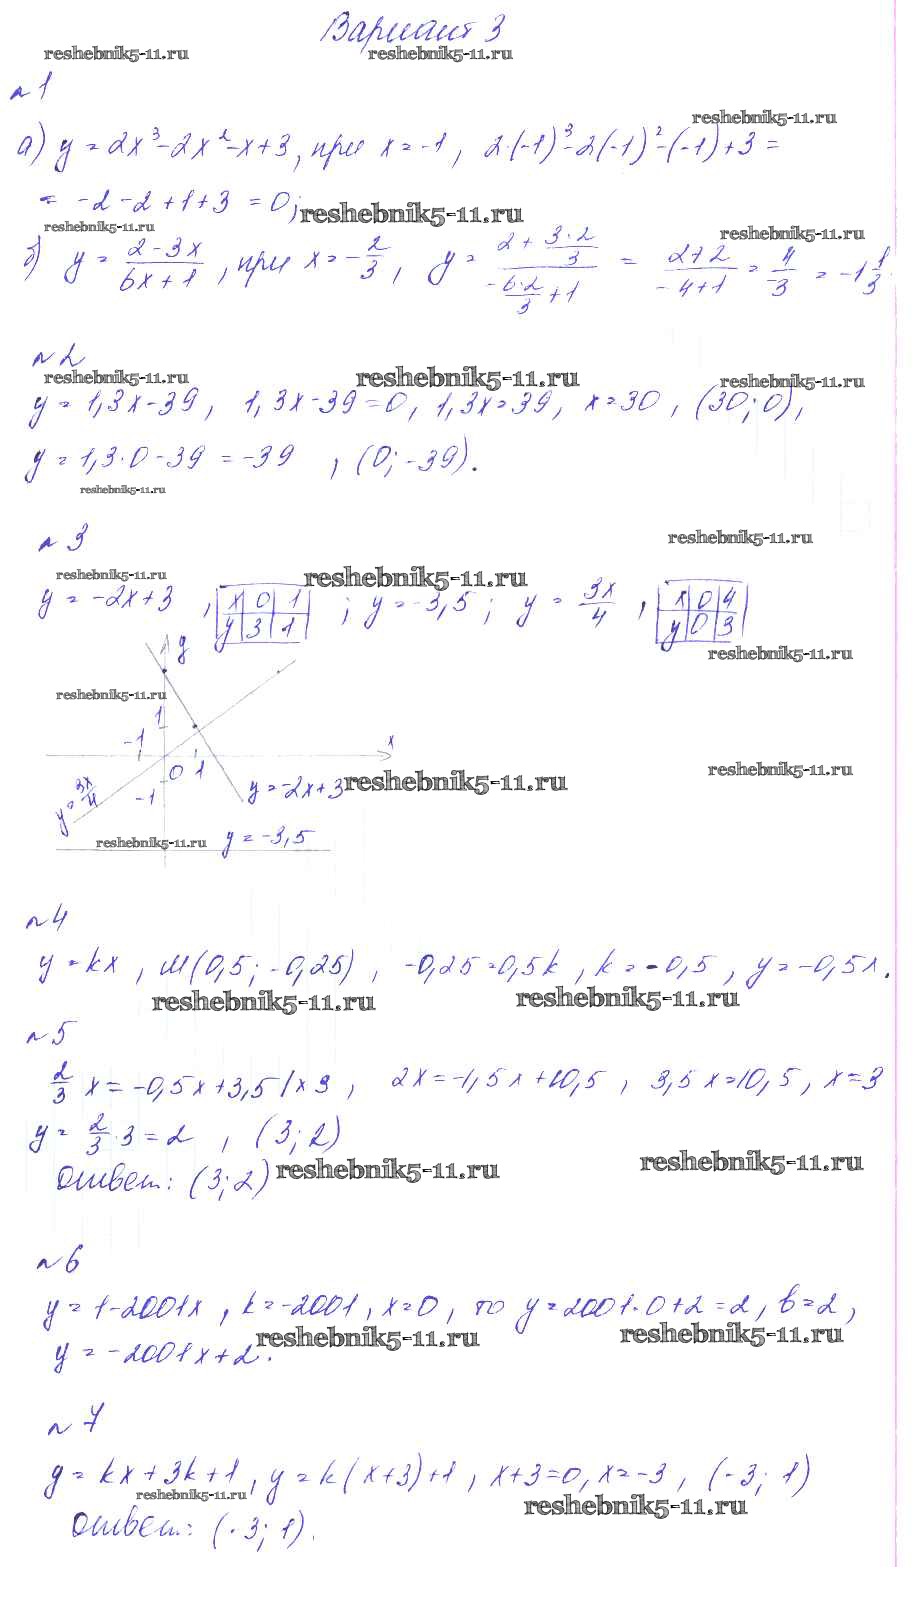 Вариант 3
reshebnik5-11.ru reshebnik5-11.ru
№1
reshebnik5-11.ru
а) y = 2x³-2x²-x+3, при x = -1, 2·(-1)³-2(-1)²-(-1)+3 =
= -2-2+1+3 = 0; reshebnik5-11.ru
reshebnik5-11.ru reshebnik5-11.ru
б) y = (2-3x)/(6x+1), при x = -2/3, y = (2+(3·2)/3)/(-(6·2)/3+1) = (2+2)/(-4+1) = 4/-3 = -1 1/3.
№2
reshebnik5-11.ru reshebnik5-11.ru reshebnik5-11.ru
y = 1,3x-39, 1,3x-39=0, 1,3x=39, x=30, (30; 0),
y = 1,3·0-39 = -39, (0; -39).
reshebnik5-11.ru
№3
reshebnik5-11.ru
reshebnik5-11.ru reshebnik5-11.ru
y = -2x+3, x 0 1 ; y = -3,5; y = 3x/4, x 0 4
y 3 1 y 0 3
reshebnik5-11.ru
y
reshebnik5-11.ru
1
-1 x
0 1
reshebnik5-11.ru reshebnik5-11.ru
y = 3x/4 -1 y = -2x+3
reshebnik5-11.ru y = -3,5
№4
y = kx, M(0,5; -0,25), -0,25=0,5k, k = -0,5, y = -0,5x.
reshebnik5-11.ru reshebnik5-11.ru
№5
2/3 x = -0,5x+3,5 /×3, 2x = -1,5x+10,5, 3,5x=10,5, x=3
y = 2/3·3 = 2, (3; 2)
Ответ: (3; 2) reshebnik5-11.ru reshebnik5-11.ru
№6
y = 1-2001x, k = -2001, x=0, то y = 2001·0+2 = 2, b = 2,
reshebnik5-11.ru reshebnik5-11.ru
y = -2001x+2.
№7
y = kx+3k+1, y = k(x+3)+1, x+3=0, x = -3, (-3; 1)
reshebnik5-11.ru reshebnik5-11.ru
Ответ: (-3; 1).